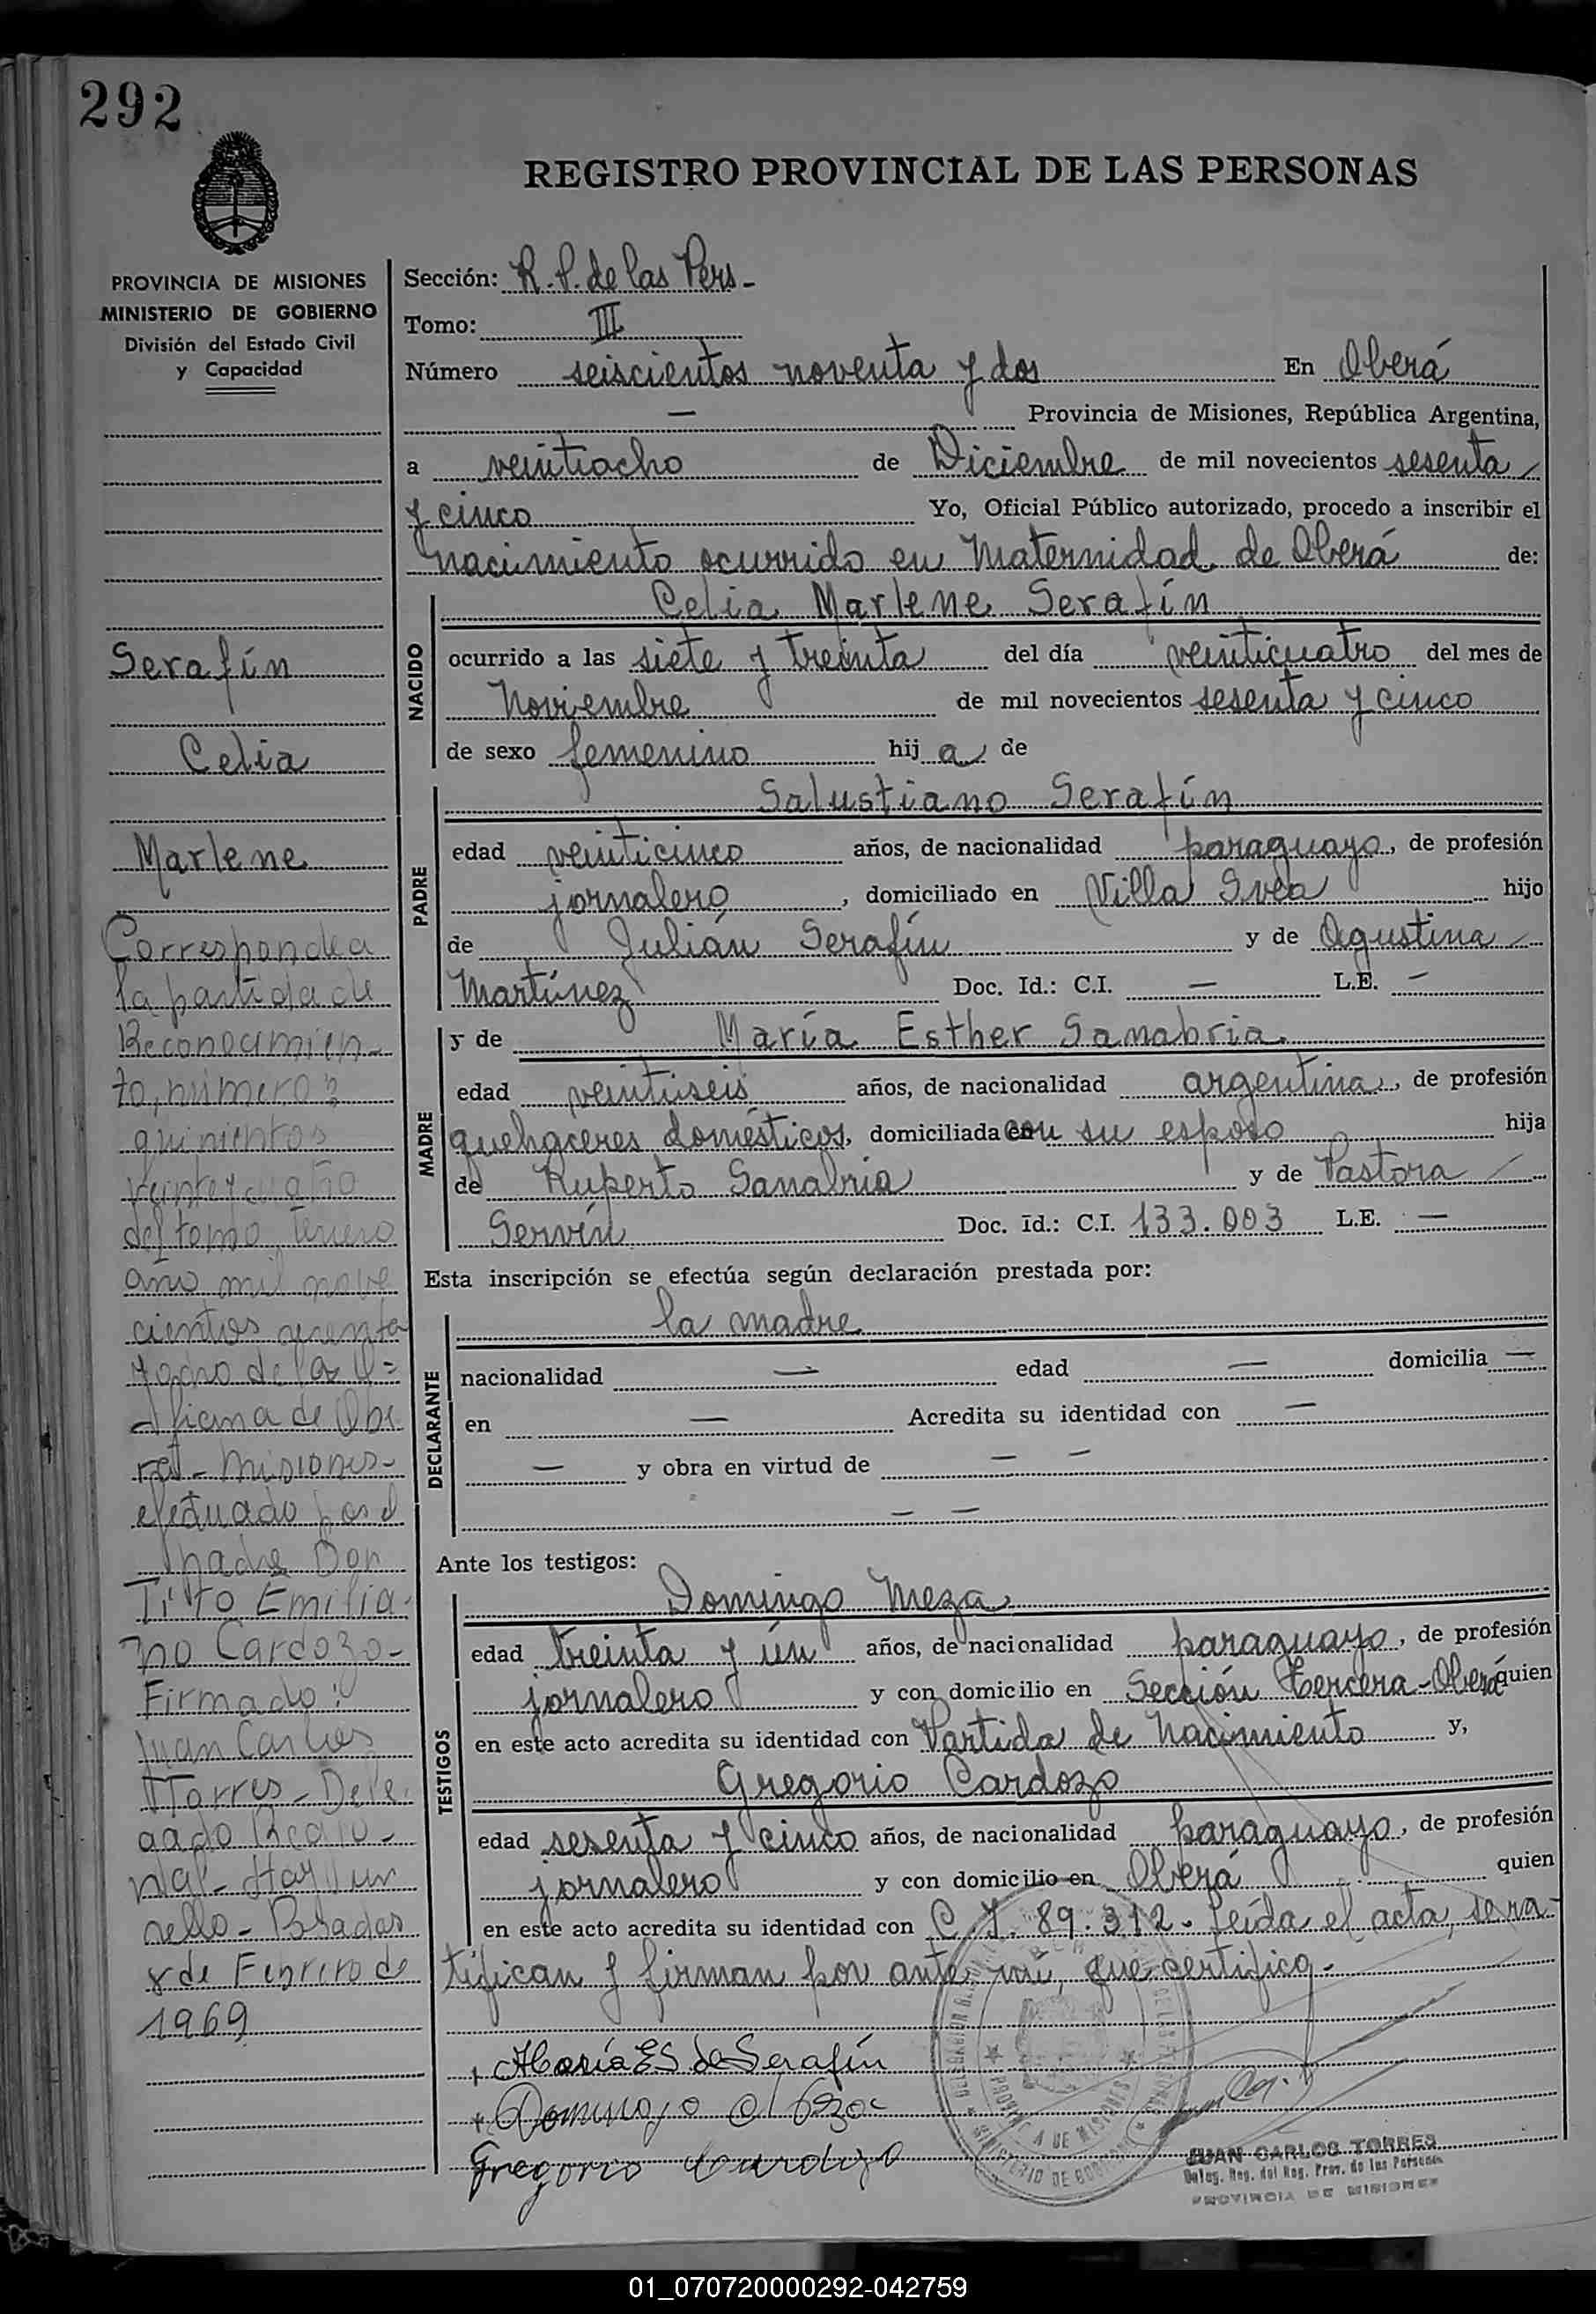 292
REGISTRO PROVINCIAL DE LAS PERSONAS
PROVINCIA DE MISIONES
MINISTERIO DE GOBIERNO
División del Estado Civil
y Capacidad
Serafín
Celia
Marlene
Corresponde a
la partida de
Reconocimien-
to, número:
quinientos
veinte y ocho
del tomo tercero
año mil nove
cientos sesenta
y ocho de la O=
ficina de Obe
rá - Misiones-
efectuado por el
padre Don
Tito Emilia-
no Cardozo-
Firmado:
Juan Carlos
Torres - Dele
gado Regio-
nal - Hay un
sello - Posadas
8 de Febrero de
1969
Sección: R. P. de las Pers -
Tomo: III
Número seiscientos noventa y dos En Oberá
— Provincia de Misiones, República Argentina,
a veintiocho de Diciembre de mil novecientos sesenta
y cinco Yo, Oficial Público autorizado, procedo a inscribir el
nacimiento ocurrido en Maternidad de Oberá de:
NACIDO
Celia Marlene Serafín
ocurrido a las siete y treinta del día veinticuatro del mes de
Noviembre de mil novecientos sesenta y cinco
de sexo femenino hij a de
PADRE
Salustiano Serafín
edad veinticinco años, de nacionalidad paraguayo, de profesión
jornalero, domiciliado en Villa Svea hijo
de Julián Serafín y de Agustina
Martínez Doc. Id.: C.I. — L.E. —
MADRE
y de María Esther Sanabria.
edad veintiseis años, de nacionalidad argentina, de profesión
quehaceres domésticos, domiciliada con su esposo hija
de Ruperto Sanabria y de Pastora
Servín Doc. Id.: C.I. 133.003 L.E. —
Esta inscripción se efectúa según declaración prestada por:
DECLARANTE
la madre
nacionalidad — edad — domicilia —
en — Acredita su identidad con —
— y obra en virtud de — —
— —
Ante los testigos:
TESTIGOS
Domingo Meza
edad treinta y ún años, de nacionalidad paraguayo, de profesión
jornalero y con domicilio en Sección Tercera - Oberá quien
en este acto acredita su identidad con Partida de Nacimiento y,
Gregorio Cardozo
edad sesenta y cinco años, de nacionalidad paraguayo, de profesión
jornalero y con domicilio en Oberá quien
en este acto acredita su identidad con C. I. 89.312 - Leída el acta, se ra-
tifican y firman por ante mí, que certifico -
María E S de Serafín
Domingo
Gregorio Cardozo
PROVINCIA DE MISIONES
MINISTERIO DE GOBIERNO
JUAN CARLOS TORRES
Deleg. Reg. del Reg. Prov. de las Personas
PROVINCIA DE MISIONES
01_070720000292-042759